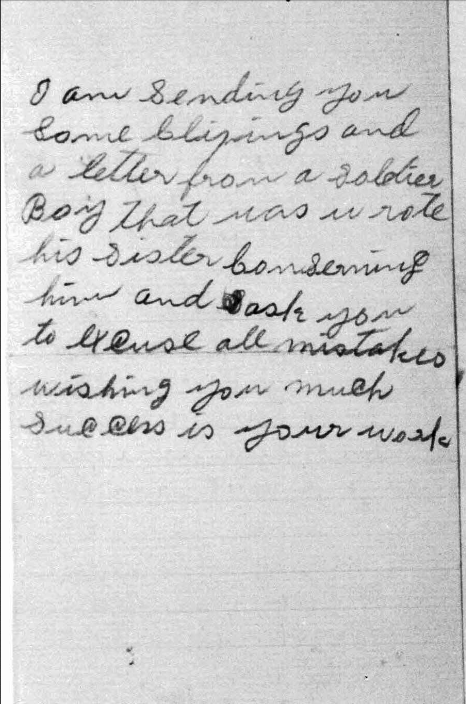 I am sending you
some clipings and
a letter from a soldier
Boy that was wrote
his sister conserning
him and I ask you
to excuse all mistakes
wishing you much
success is your work